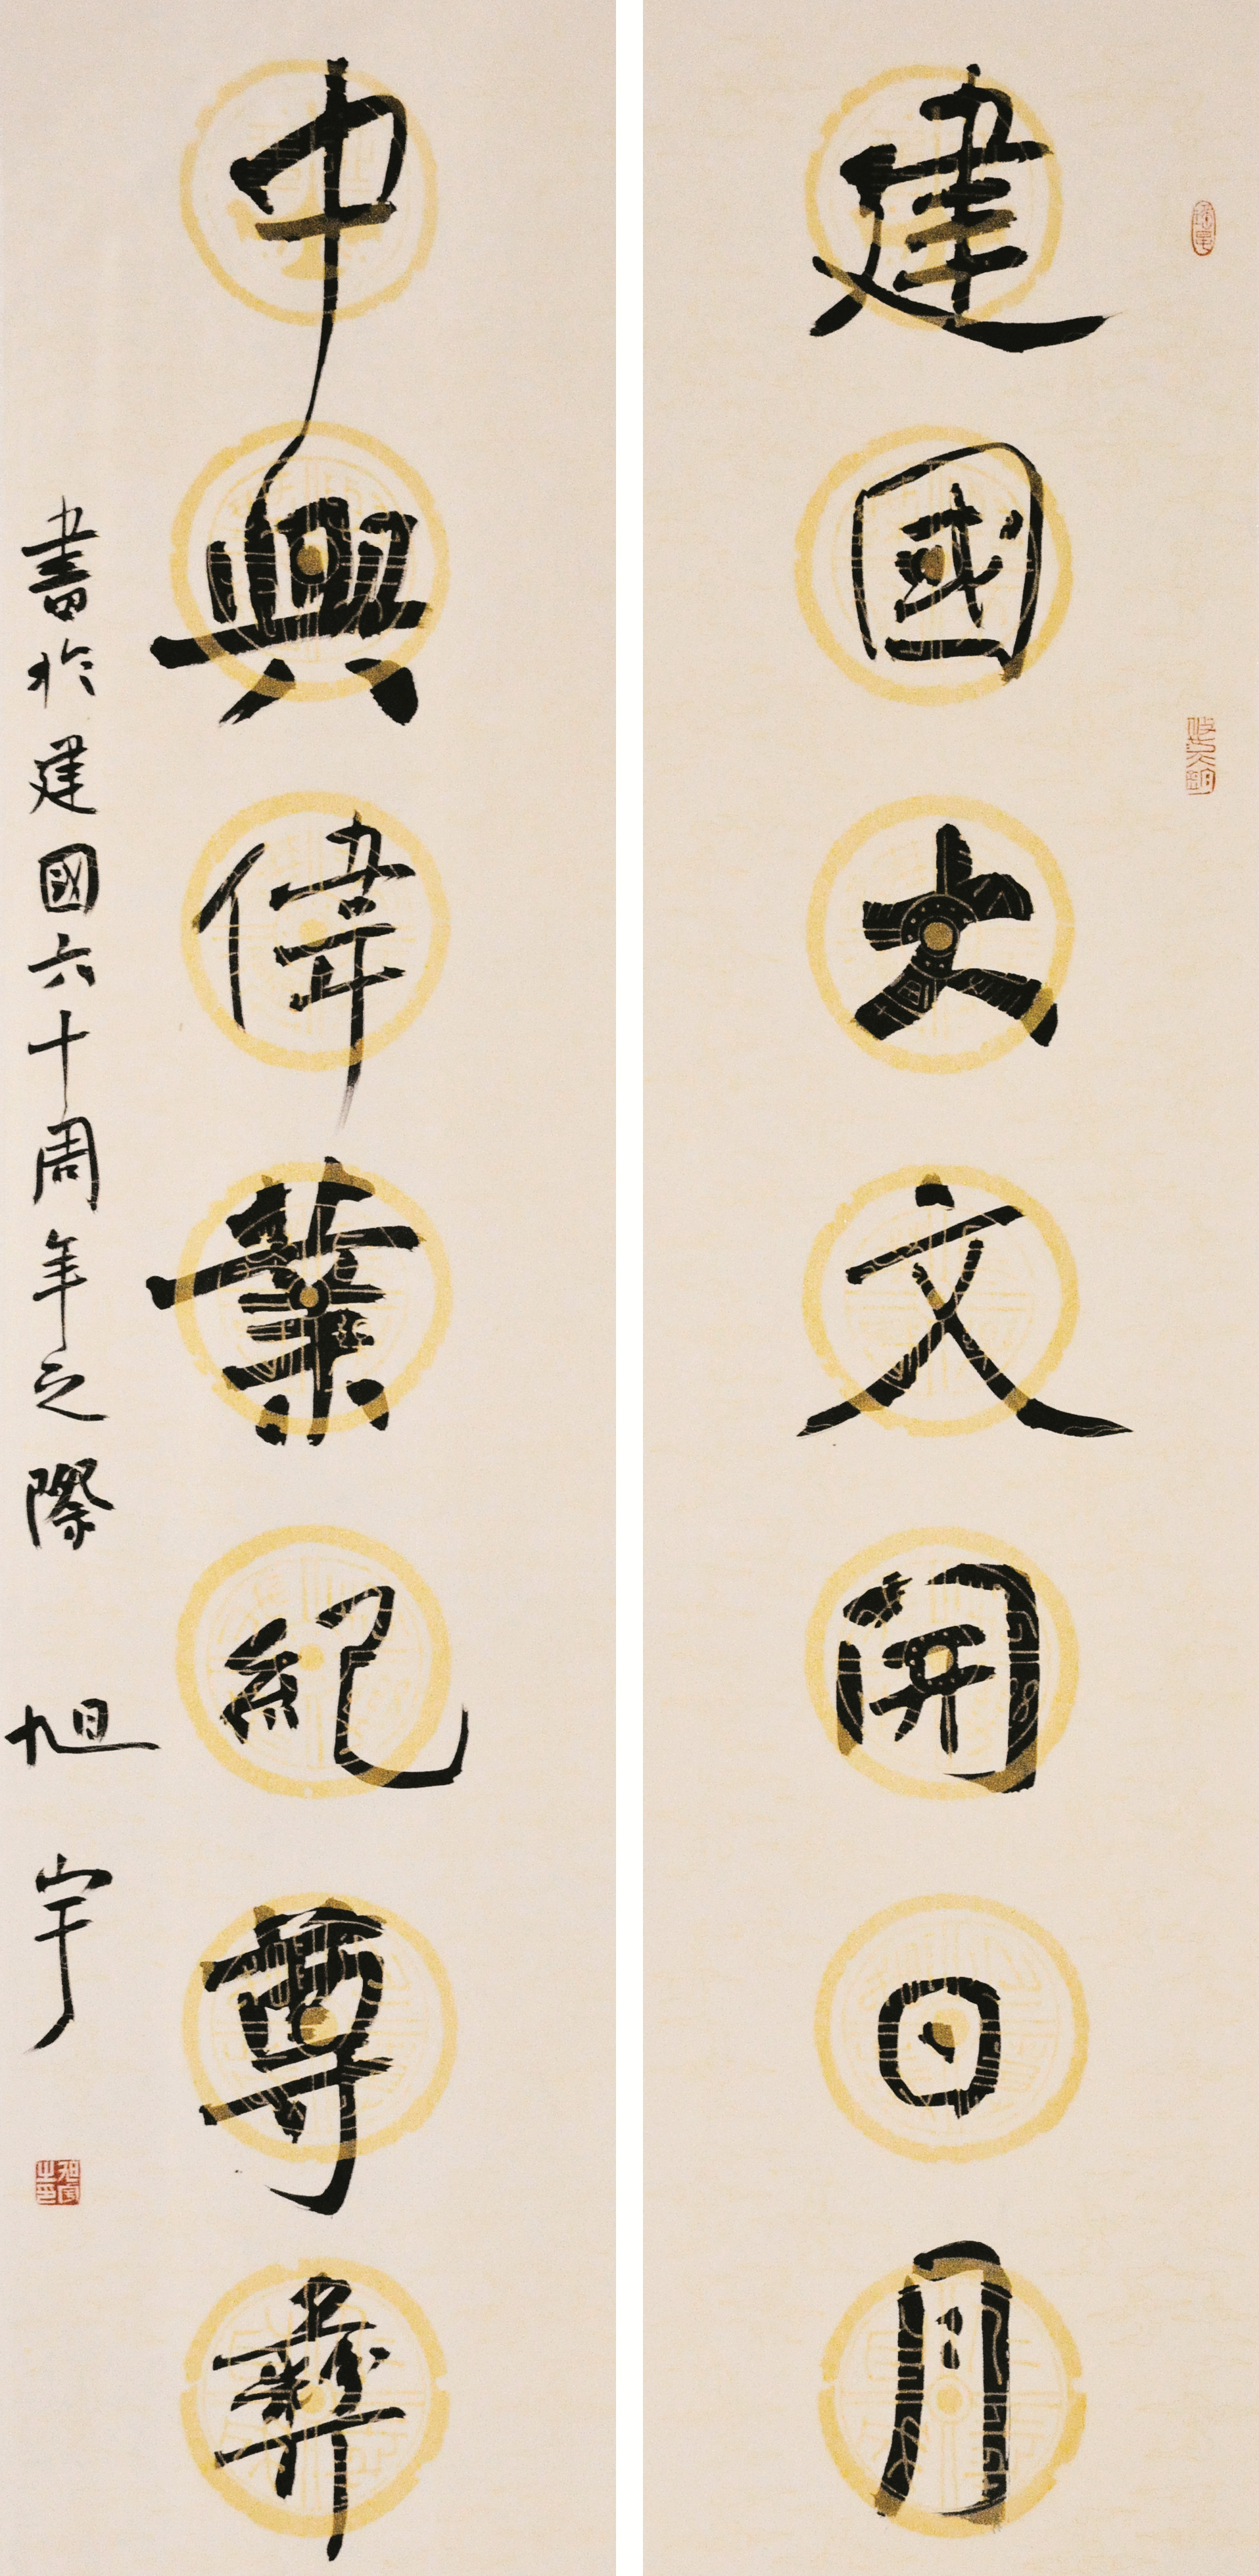 建國大文開日月
中興偉業紀尊彝
書於建國六十周年之際
旭宇
旭宇之印